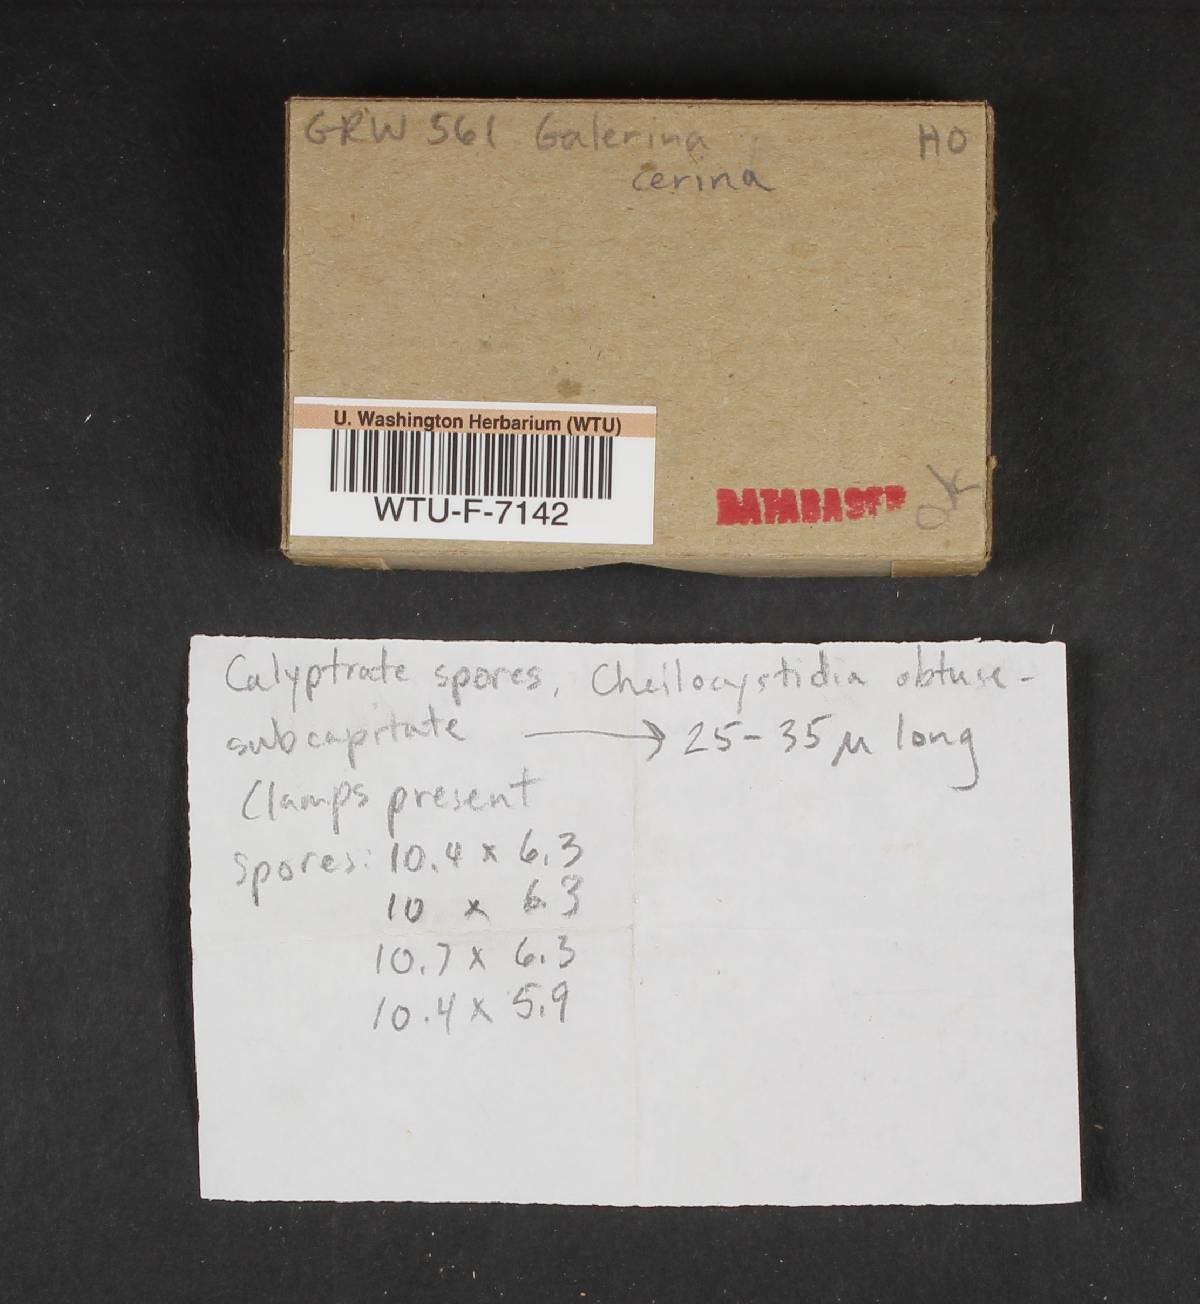 GRW 561 Galerina HO
cerina
U. Washington Herbarium (WTU)
WTU-F-7142
DATABASED
OK
Calyptrate spores, Cheilocystidia obtuse-
subcapitate → 25-35 µ long
Clamps present
spores: 10.4 x 6.3
10 x 6.3
10.7 x 6.3
10.4 x 5.9